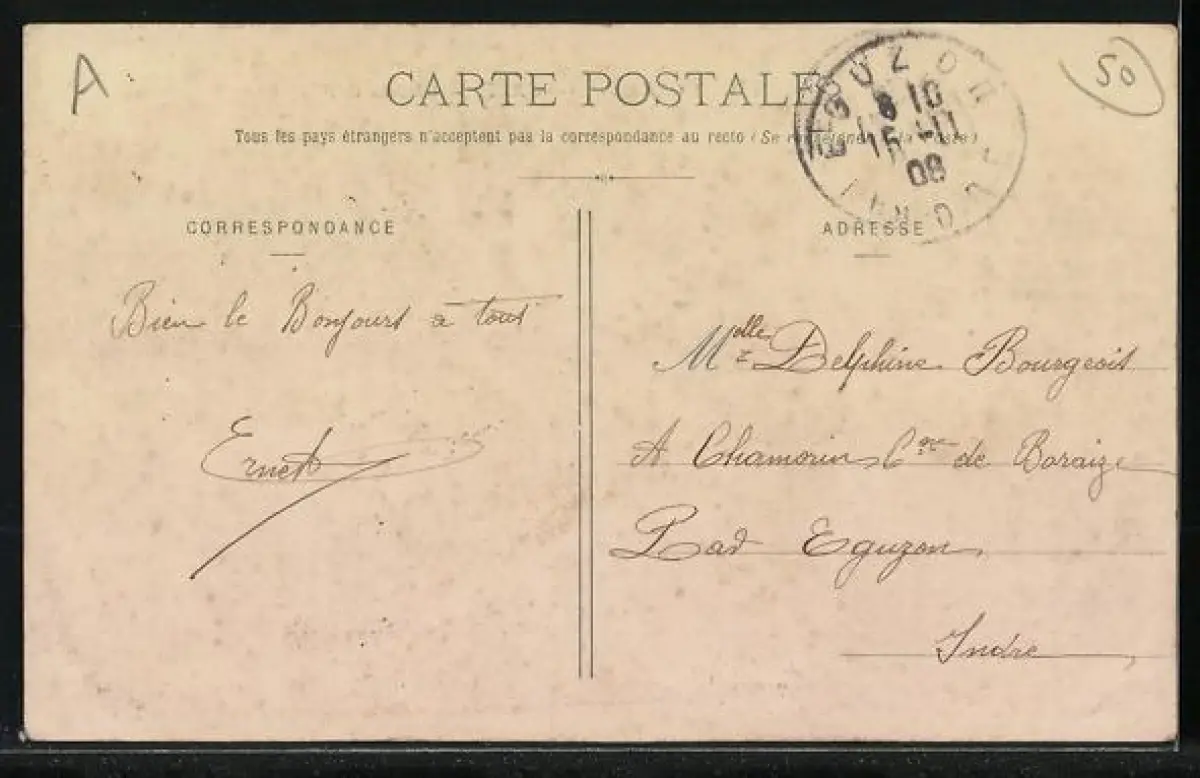 A
50
CARTE POSTALE
Tous les pays étrangers n'acceptent pas la correspondance au recto (Se renseigner à la Poste)
EGUZON
8 10
15 -11
08
INDRE
CORRESPONDANCE
ADRESSE
Bien le Bonjours a tous
Ernest
Melle Delphine Bourgeois
A Chamorin Cne de Baraize
Par Eguzon
Indre